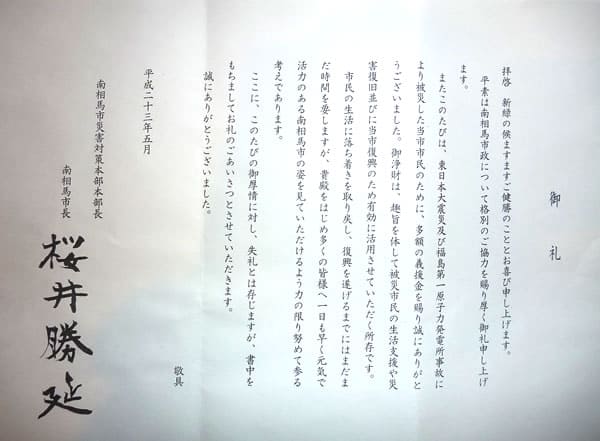 御礼
拝啓　新緑の候ますますご健勝のこととお喜び申し上げます。
平素は南相馬市政について格別のご協力を賜り厚く御礼申し上げ
ます。
またこのたびは、東日本大震災及び福島第一原子力発電所事故に
より被災した当市市民のために、多額の義援金を賜り誠にありがと
うございました。御浄財は、趣旨を体して被災市民の生活支援や災
害復旧並びに当市復興のため有効に活用させていただく所存です。
市民の生活に落ち着きを取り戻し、復興を遂げるまでにはまだま
だ時間を要しますが、貴殿をはじめ多くの皆様へ一日も早く元気で
活力のある南相馬市の姿を見ていただけるよう力の限り努めて参る
考えであります。
ここに、このたびの御厚情に対し、失礼とは存じますが、書中を
もちましてお礼のごあいさつとさせていただきます。
誠にありがとうございました。
敬具
平成二十三年五月
南相馬市災害対策本部本部長
南相馬市長
桜井勝延